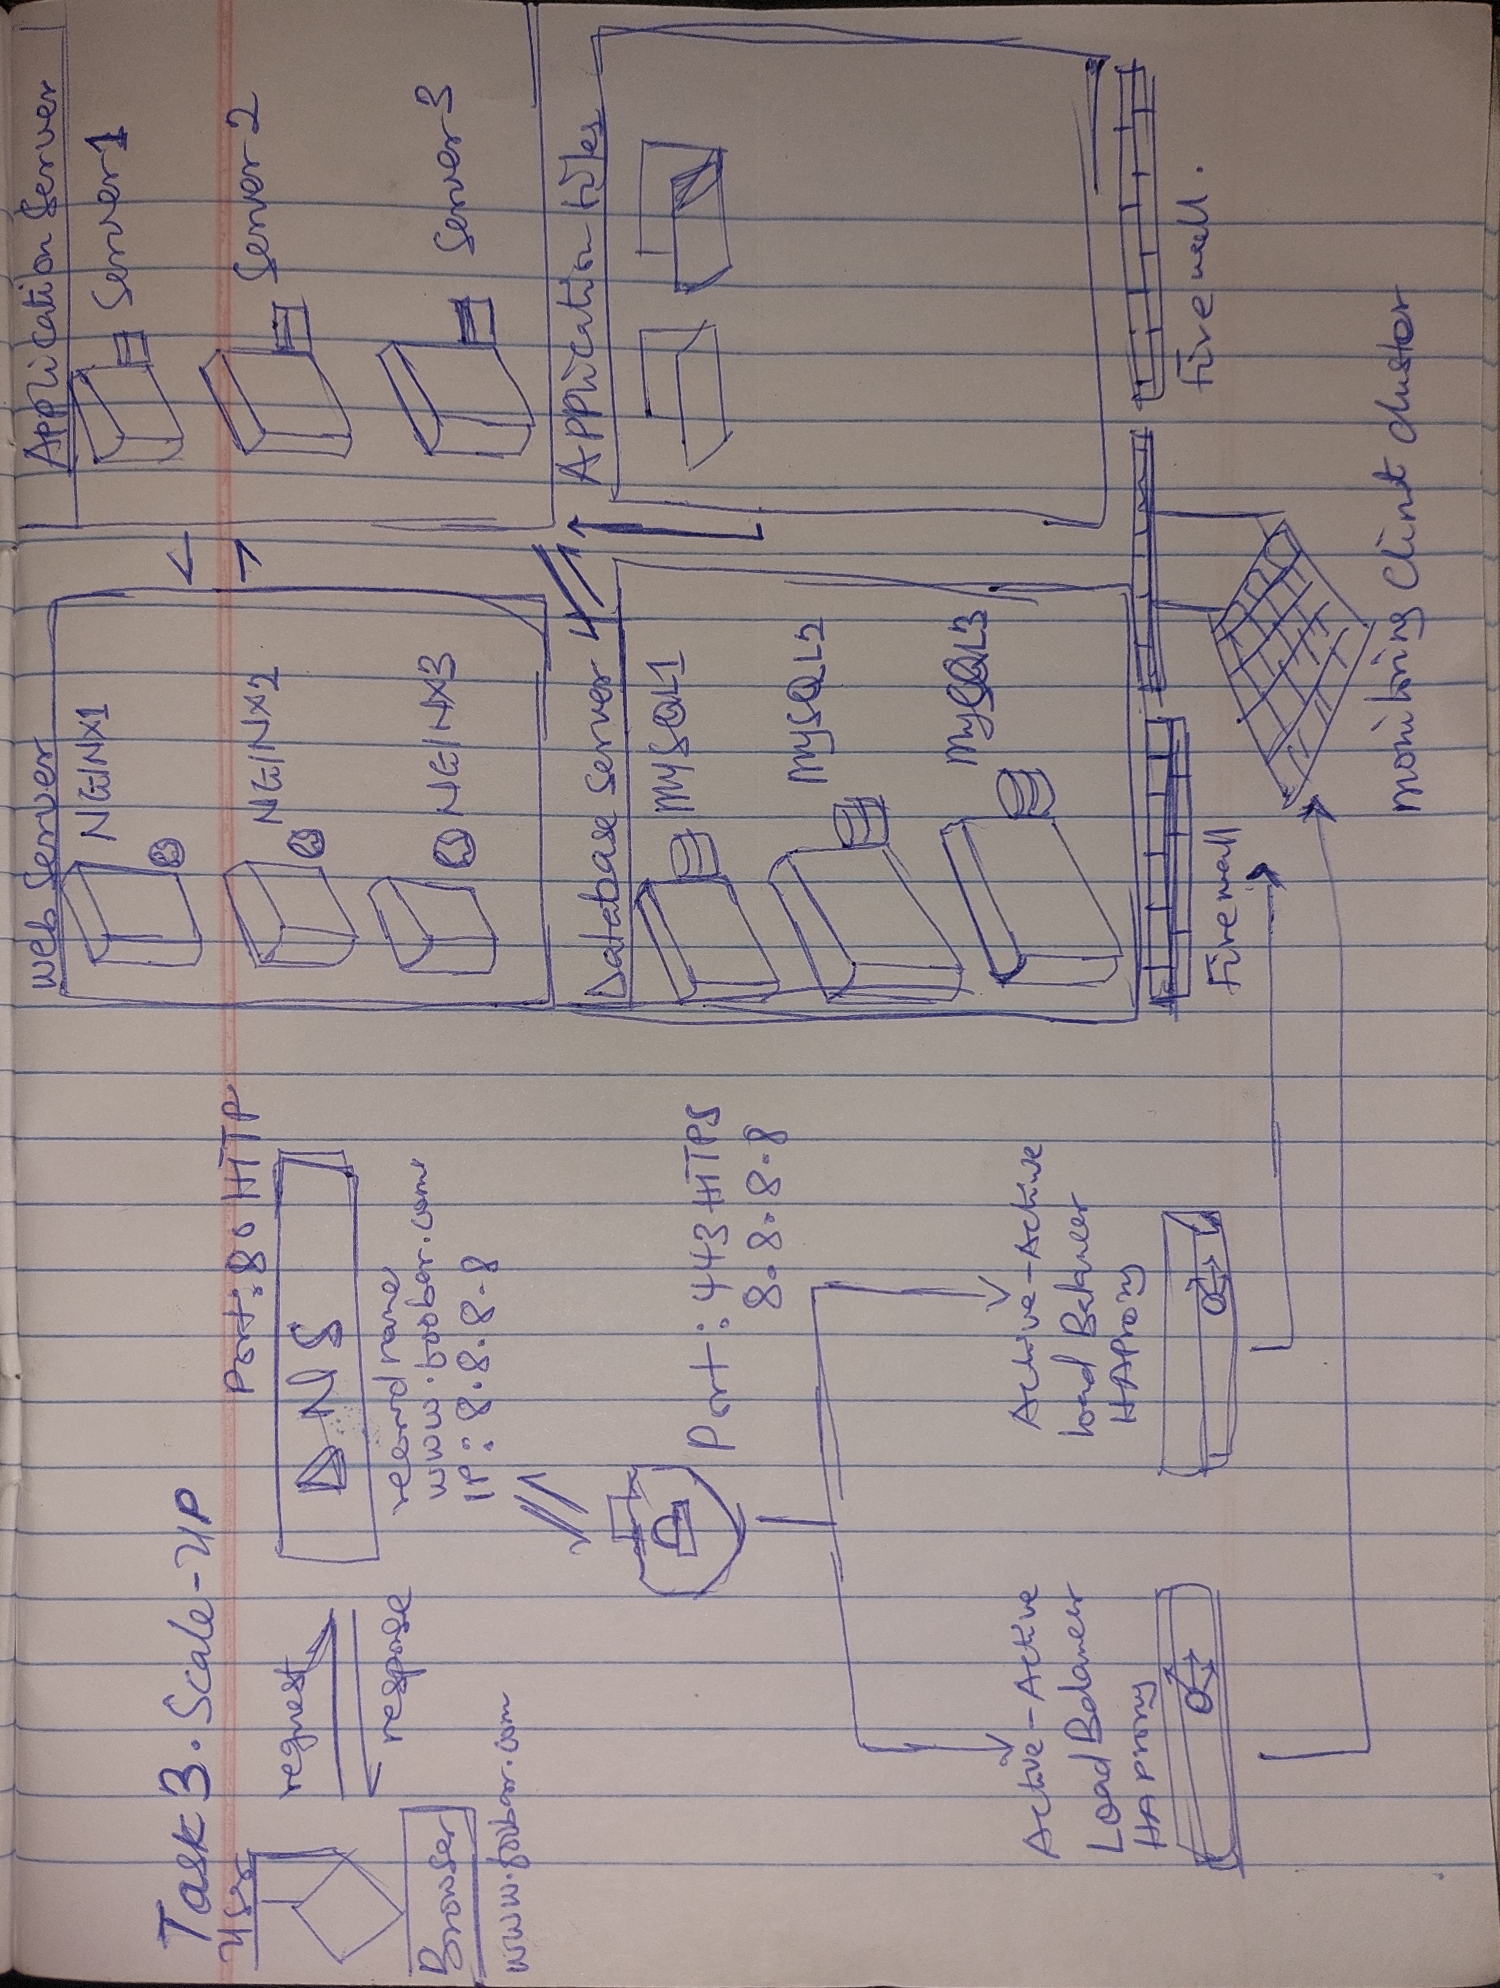 Task 3. Scale-UP
User
request
response
Browser
www.foobar.com
Port: 80 HTTP
DNS
record name
www.foobar.com
IP: 8.8.8.8
Port: 443 HTTPS
8.8.8.8
Active-Active
Load Balancer
HAProxy
Active-Active
Load Balancer
HAProxy
Web Server
NGINX1
NGINX2
NGINX3
Application Server
Server 1
Server 2
Server 3
Database Server
MySQL1
MySQL2
MySQL3
Application files
Firewall
Firewall.
monitoring Clint cluster